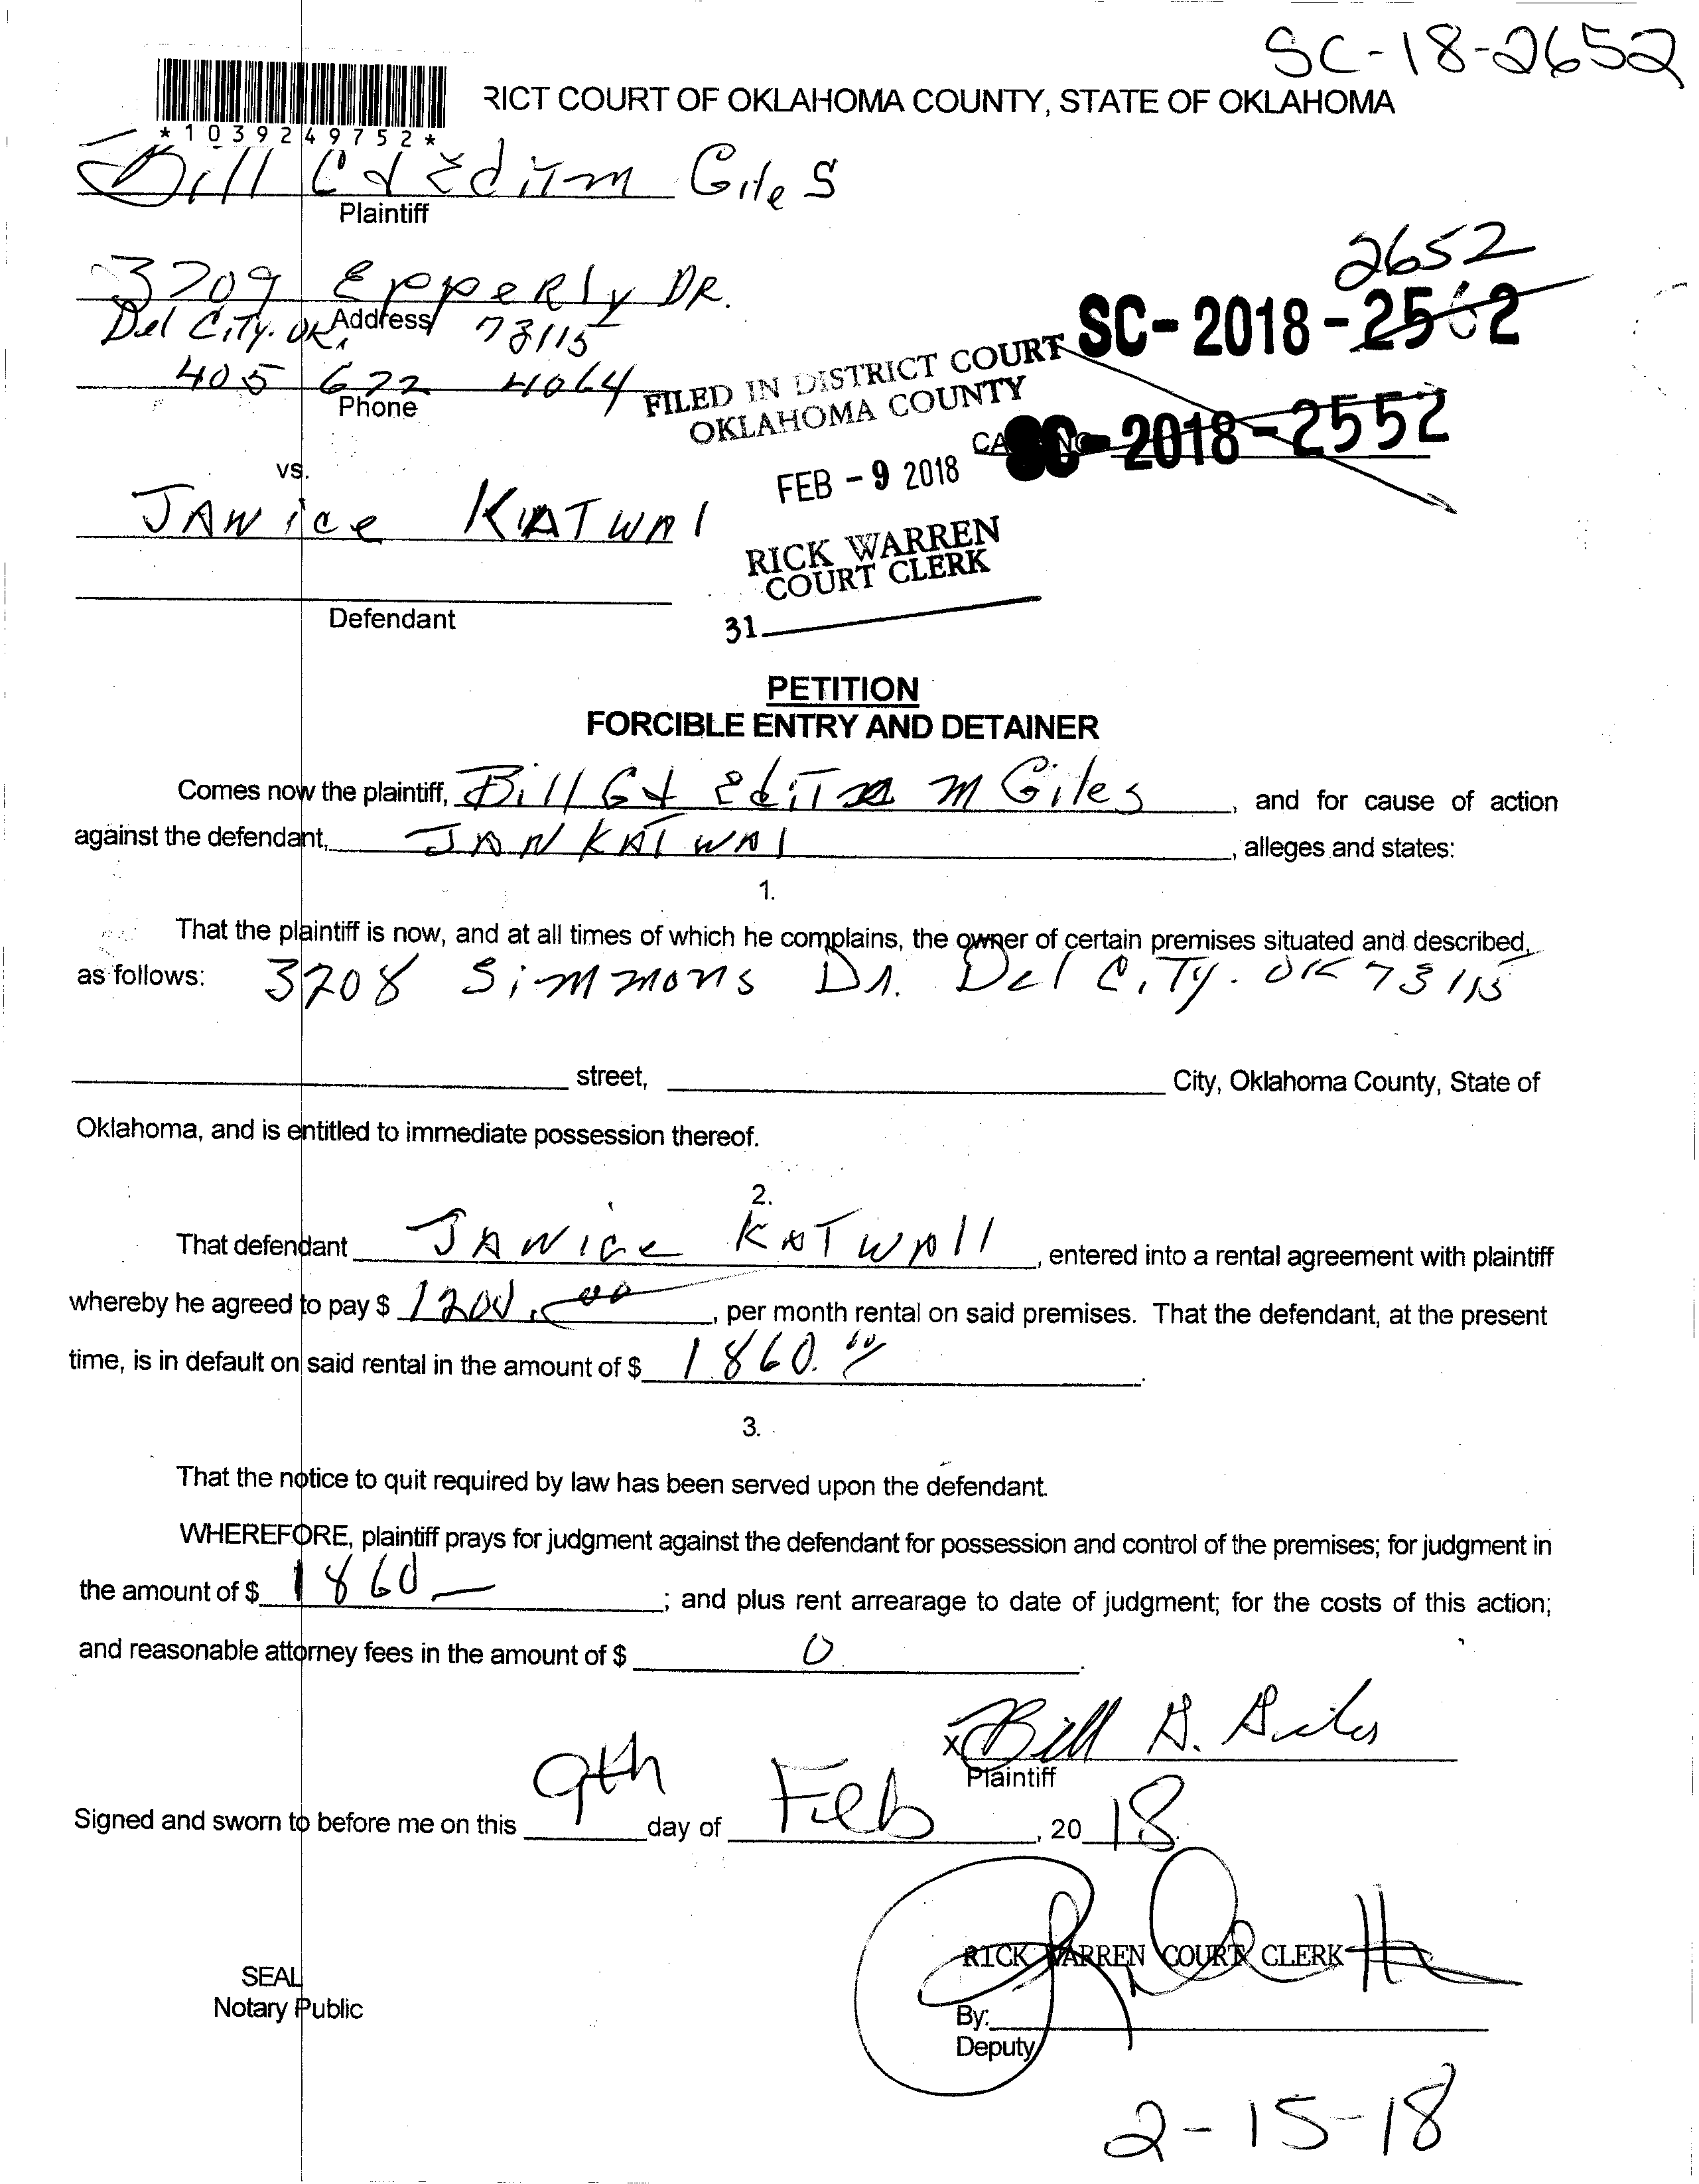 SC-18-2652
RICT COURT OF OKLAHOMA COUNTY, STATE OF OKLAHOMA
*1039249752*
Bill G & Edith m Giles
Plaintiff
3709 Epperly DR.
Address
Del City. OK. 73115
405 677 4064
Phone
2652
SC-2018-2562
FILED IN DISTRICT COURT
OKLAHOMA COUNTY
SC-2018-2552
FEB - 9 2018
vs.
JANice KATWAl
RICK WARREN
COURT CLERK
Defendant
31
PETITION
FORCIBLE ENTRY AND DETAINER
Comes now the plaintiff, Bill G & Edith m Giles, and for cause of action
against the defendant, JAN KATWAl, alleges and states:
1.
That the plaintiff is now, and at all times of which he complains, the owner of certain premises situated and described,
as follows: 3708 Simmons Dr. Del City. OK 73115
street, City, Oklahoma County, State of
Oklahoma, and is entitled to immediate possession thereof.
2.
That defendant JANice KATWAll, entered into a rental agreement with plaintiff
whereby he agreed to pay $ 1200.00, per month rental on said premises. That the defendant, at the present
time, is in default on said rental in the amount of $ 1860.00.
3.
That the notice to quit required by law has been served upon the defendant.
WHEREFORE, plaintiff prays for judgment against the defendant for possession and control of the premises; for judgment in
the amount of $ 1860 —; and plus rent arrearage to date of judgment; for the costs of this action;
and reasonable attorney fees in the amount of $ 0.
X Bill G. Giles
Plaintiff
Signed and sworn to before me on this 9th day of Feb, 20 18.
RICK WARREN COURT CLERK
SEAL
Notary Public
By:
Deputy
2-15-18